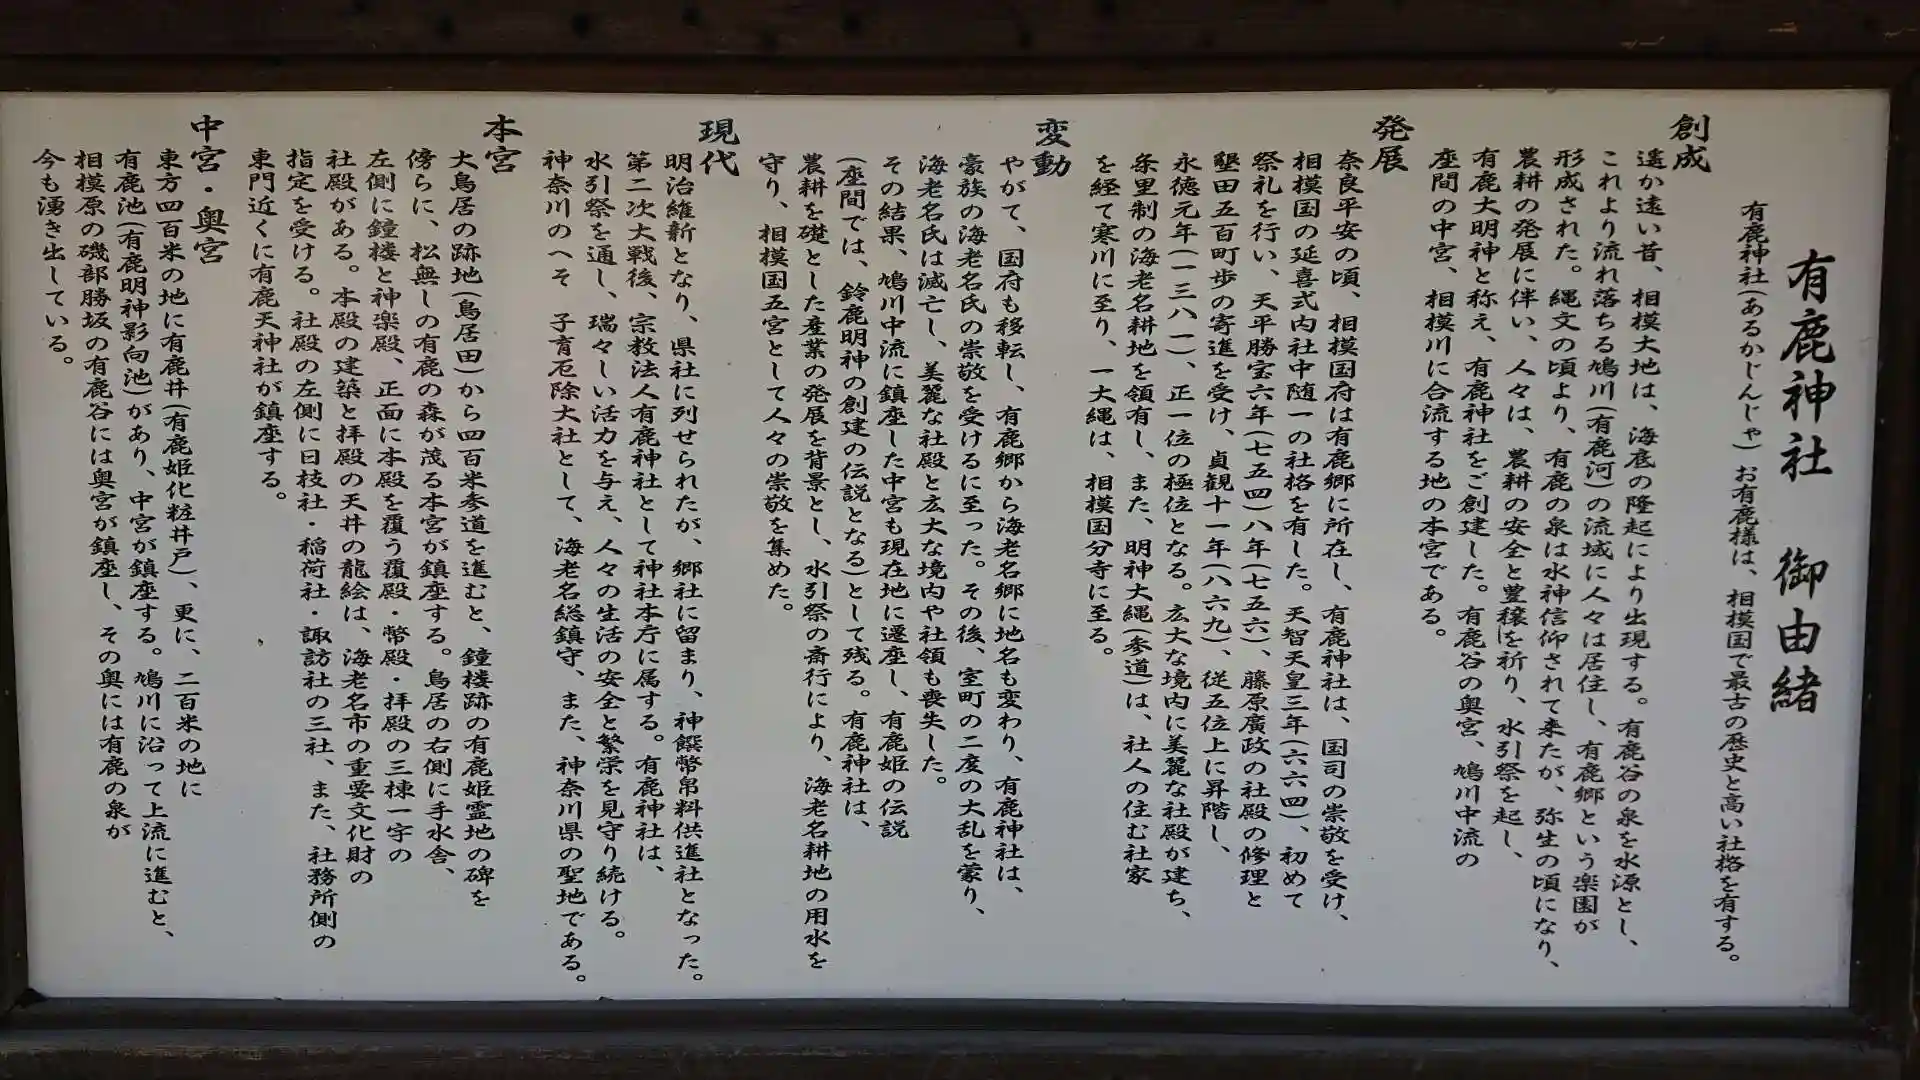 有鹿神社 御由緒
有鹿神社(あるかじんじゃ) お有鹿様は、相模国で最古の歴史と高い社格を有する。
創成
遙か遠い昔、相模大地は、海底の隆起により出現する。有鹿谷の泉を水源とし、
これより流れ落ちる鳩川(有鹿河)の流域に人々は居住し、有鹿郷という楽園が
形成された。縄文の頃より、有鹿の泉は水神信仰されて来たが、弥生の頃になり、
農耕の発展に伴い、人々は、農耕の安全と豊穣を祈り、水引祭を起し、
有鹿大明神と称え、有鹿神社をご創建した。有鹿谷の奥宮、鳩川中流の
座間の中宮、相模川に合流する地の本宮である。
発展
奈良平安の頃、相模国府は有鹿郷に所在し、有鹿神社は、国司の崇敬を受け、
相模国の延喜式内社中随一の社格を有した。天智天皇三年(六六四)、初めて
祭礼を行い、天平勝宝六年(七五四)八年(七五六)、藤原廣政の社殿の修理と
墾田五百町歩の寄進を受け、貞観十一年(八六九)、従五位上に昇階し、
永徳元年(一三八一)、正一位の極位となる。広大な境内に美麗な社殿が建ち、
条里制の海老名耕地を領有し、また、明神大縄(参道)は、社人の住む社家
を経て寒川に至り、一大縄は、相模国分寺に至る。
変動
やがて、国府も移転し、有鹿郷から海老名郷に地名も変わり、有鹿神社は、
豪族の海老名氏の崇敬を受けるに至った。その後、室町の二度の大乱を蒙り、
海老名氏は滅亡し、美麗な社殿と広大な境内や社領も喪失した。
その結果、鳩川中流に鎮座した中宮も現在地に遷座し、有鹿姫の伝説
(座間では、鈴鹿明神の創建の伝説となる)として残る。有鹿神社は、
農耕を礎とした産業の発展を背景とし、水引祭の斎行により、海老名耕地の用水を
守り、相模国五宮として人々の崇敬を集めた。
現代
明治維新となり、県社に列せられたが、郷社に留まり、神饌幣帛料供進社となった。
第二次大戦後、宗教法人有鹿神社として神社本庁に属する。有鹿神社は、
水引祭を通し、瑞々しい活力を与え、人々の生活の安全と繁栄を見守り続ける。
神奈川のへそ 子育厄除大社として、海老名総鎮守、また、神奈川県の聖地である。
本宮
大鳥居の跡地(鳥居田)から四百米参道を進むと、鐘楼跡の有鹿姫霊地の碑を
傍らに、松無しの有鹿の森が茂る本宮が鎮座する。鳥居の右側に手水舎、
左側に鐘楼と神楽殿、正面に本殿を覆う覆殿・幣殿・拝殿の三棟一宇の
社殿がある。本殿の建築と拝殿の天井の龍絵は、海老名市の重要文化財の
指定を受ける。社殿の左側に日枝社・稲荷社・諏訪社の三社、また、社務所側の
東門近くに有鹿天神社が鎮座する。
中宮・奥宮
東方四百米の地に有鹿井(有鹿姫化粧井戸)、更に、二百米の地に
有鹿池(有鹿明神影向池)があり、中宮が鎮座する。鳩川に沿って上流に進むと、
相模原の磯部勝坂の有鹿谷には奥宮が鎮座し、その奥には有鹿の泉が
今も湧き出している。